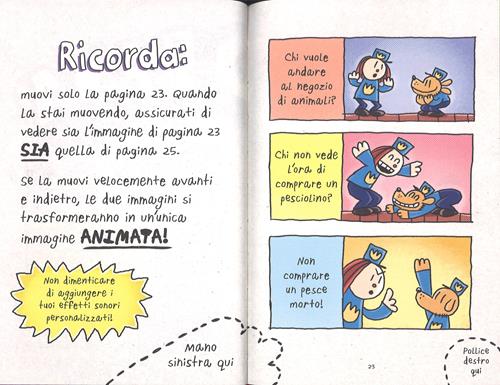 Ricorda:
muovi solo la pagina 23. Quando
la stai muovendo, assicurati di
vedere sia l'immagine di pagina 23
SIA quella di pagina 25.
Se la muovi velocemente avanti
e indietro, le due immagini si
trasformeranno in un'unica
immagine ANIMATA!
Non dimenticare
di aggiungere i
tuoi effetti sonori
personalizzati!
Mano
sinistra qui
Chi vuole
andare
al negozio
di animali?
Chi non vede
l'ora di
comprare un
pesciolino?
Non
comprare
un pesce
morto!
23
Pollice
destro
qui